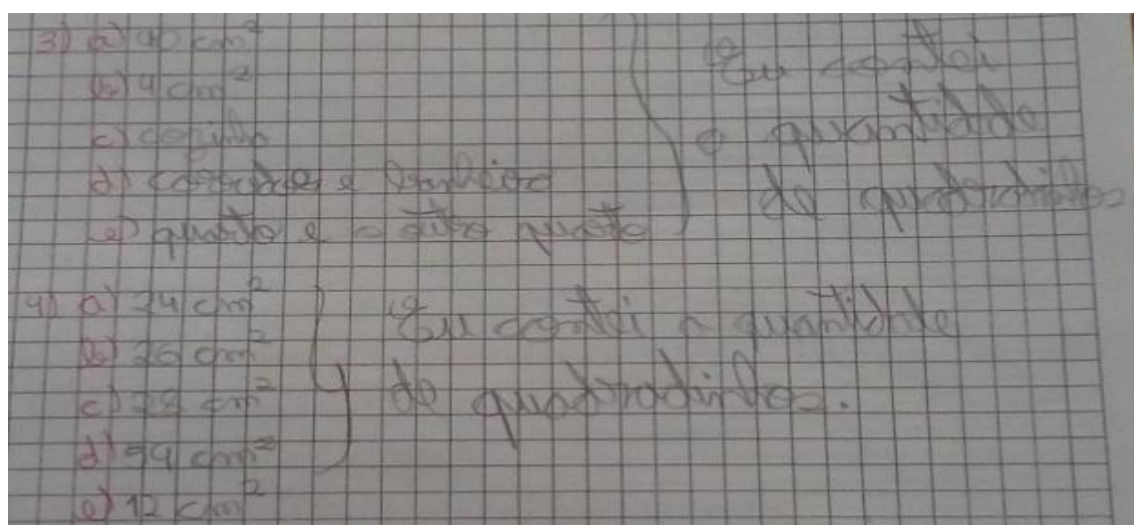 3) a) 40 cm²
b) 4 cm²
c) cozinha
d) corredor e banheiro
e) quarto e o outro quarto
Eu contei
a quantidade
de quadradinhos
4) a) 24 cm²
b) 26 cm²
c) 28 cm²
d) 94 cm²
e) 12 cm²
Eu contei a quantidade
de quadradinhos.